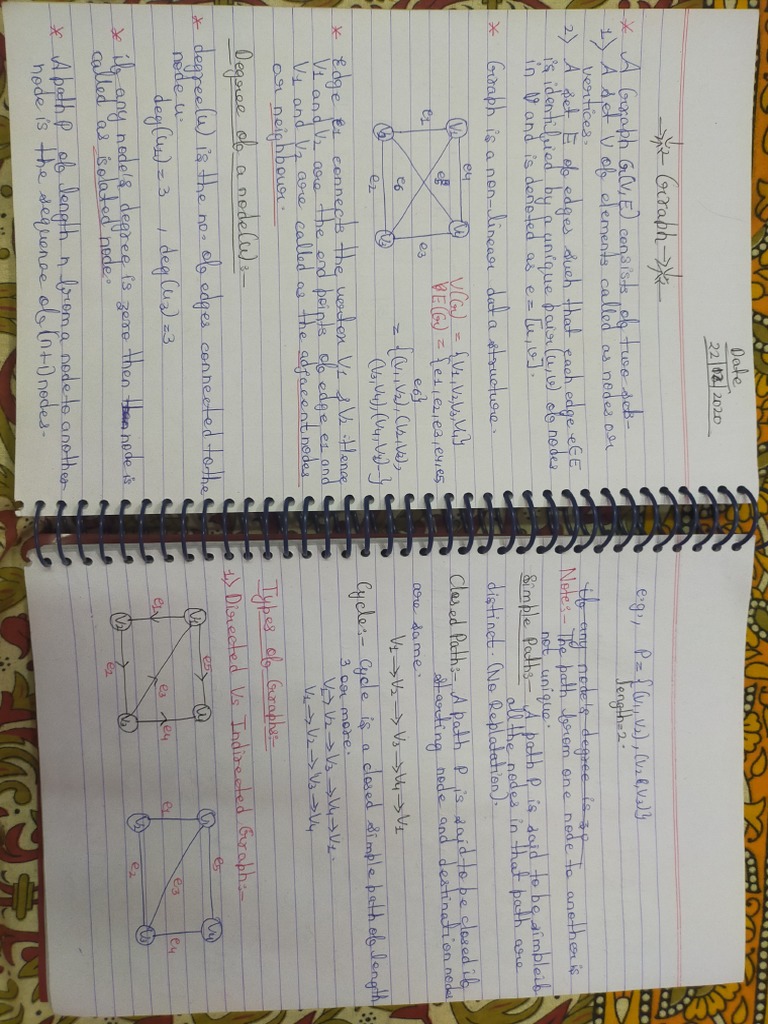 Date
22/08/2020
Graph
* A Graph G(V,E) consists of two set-
1) A set V of elements called as nodes or
vertices.
2) A set E of edges such that each edge e∈E
is identified by a unique pair (u,v) of nodes
in V and is denoted as e = [u,v].
* Graph is a non-linear data structure.
V(G) = {V1,V2,V3,V4}
E(G) = {e1,e2,e3,e4,e5
e6}
= {(V1,V2),(V2,V3),
(V3,V4),(V4,V1)-}
e1
e4
e6
e2
e3
* Edge e1 connects the vertex V1 & V2. Hence
V1 and V2 are the end points of edge e1 and
V1 and V2 are called as the adjacent nodes
or neighbour.
Degree of a node(u):-
* degree(u) is the no. of edges connected to the
node u.
deg(u1) = 3 , deg(u2) = 3
* if any node's degree is zero then node is
called as isolated node.
* A path P of length n from a node to another
node is the sequence of (n+1) nodes.
eg:, P = {(V1,V2),(V2,V3)}
length=2.
if any node's degree is
Notes:- The path from one node to another is
not unique.
Simple Path:- A path P is said to be simple if
all the nodes in that path are
distinct. (No Replatation).
Closed Path:- A path P is said to be closed if
starting node and destination node
are same.
V1 → V2 → V3 → V4 → V1
Cycle:- Cycle is a closed simple path of length
3 or more.
V1 → V2 → V3 → V4 → V1.
V1 → V2 → V3 → V4
Types of Graphs:-
1) Directed Vs Indirected Graph:-
V1 e5 V4
e1 e3 e4
V2 e2 V3
e5 V4
e1 e3 e4
e2 V3